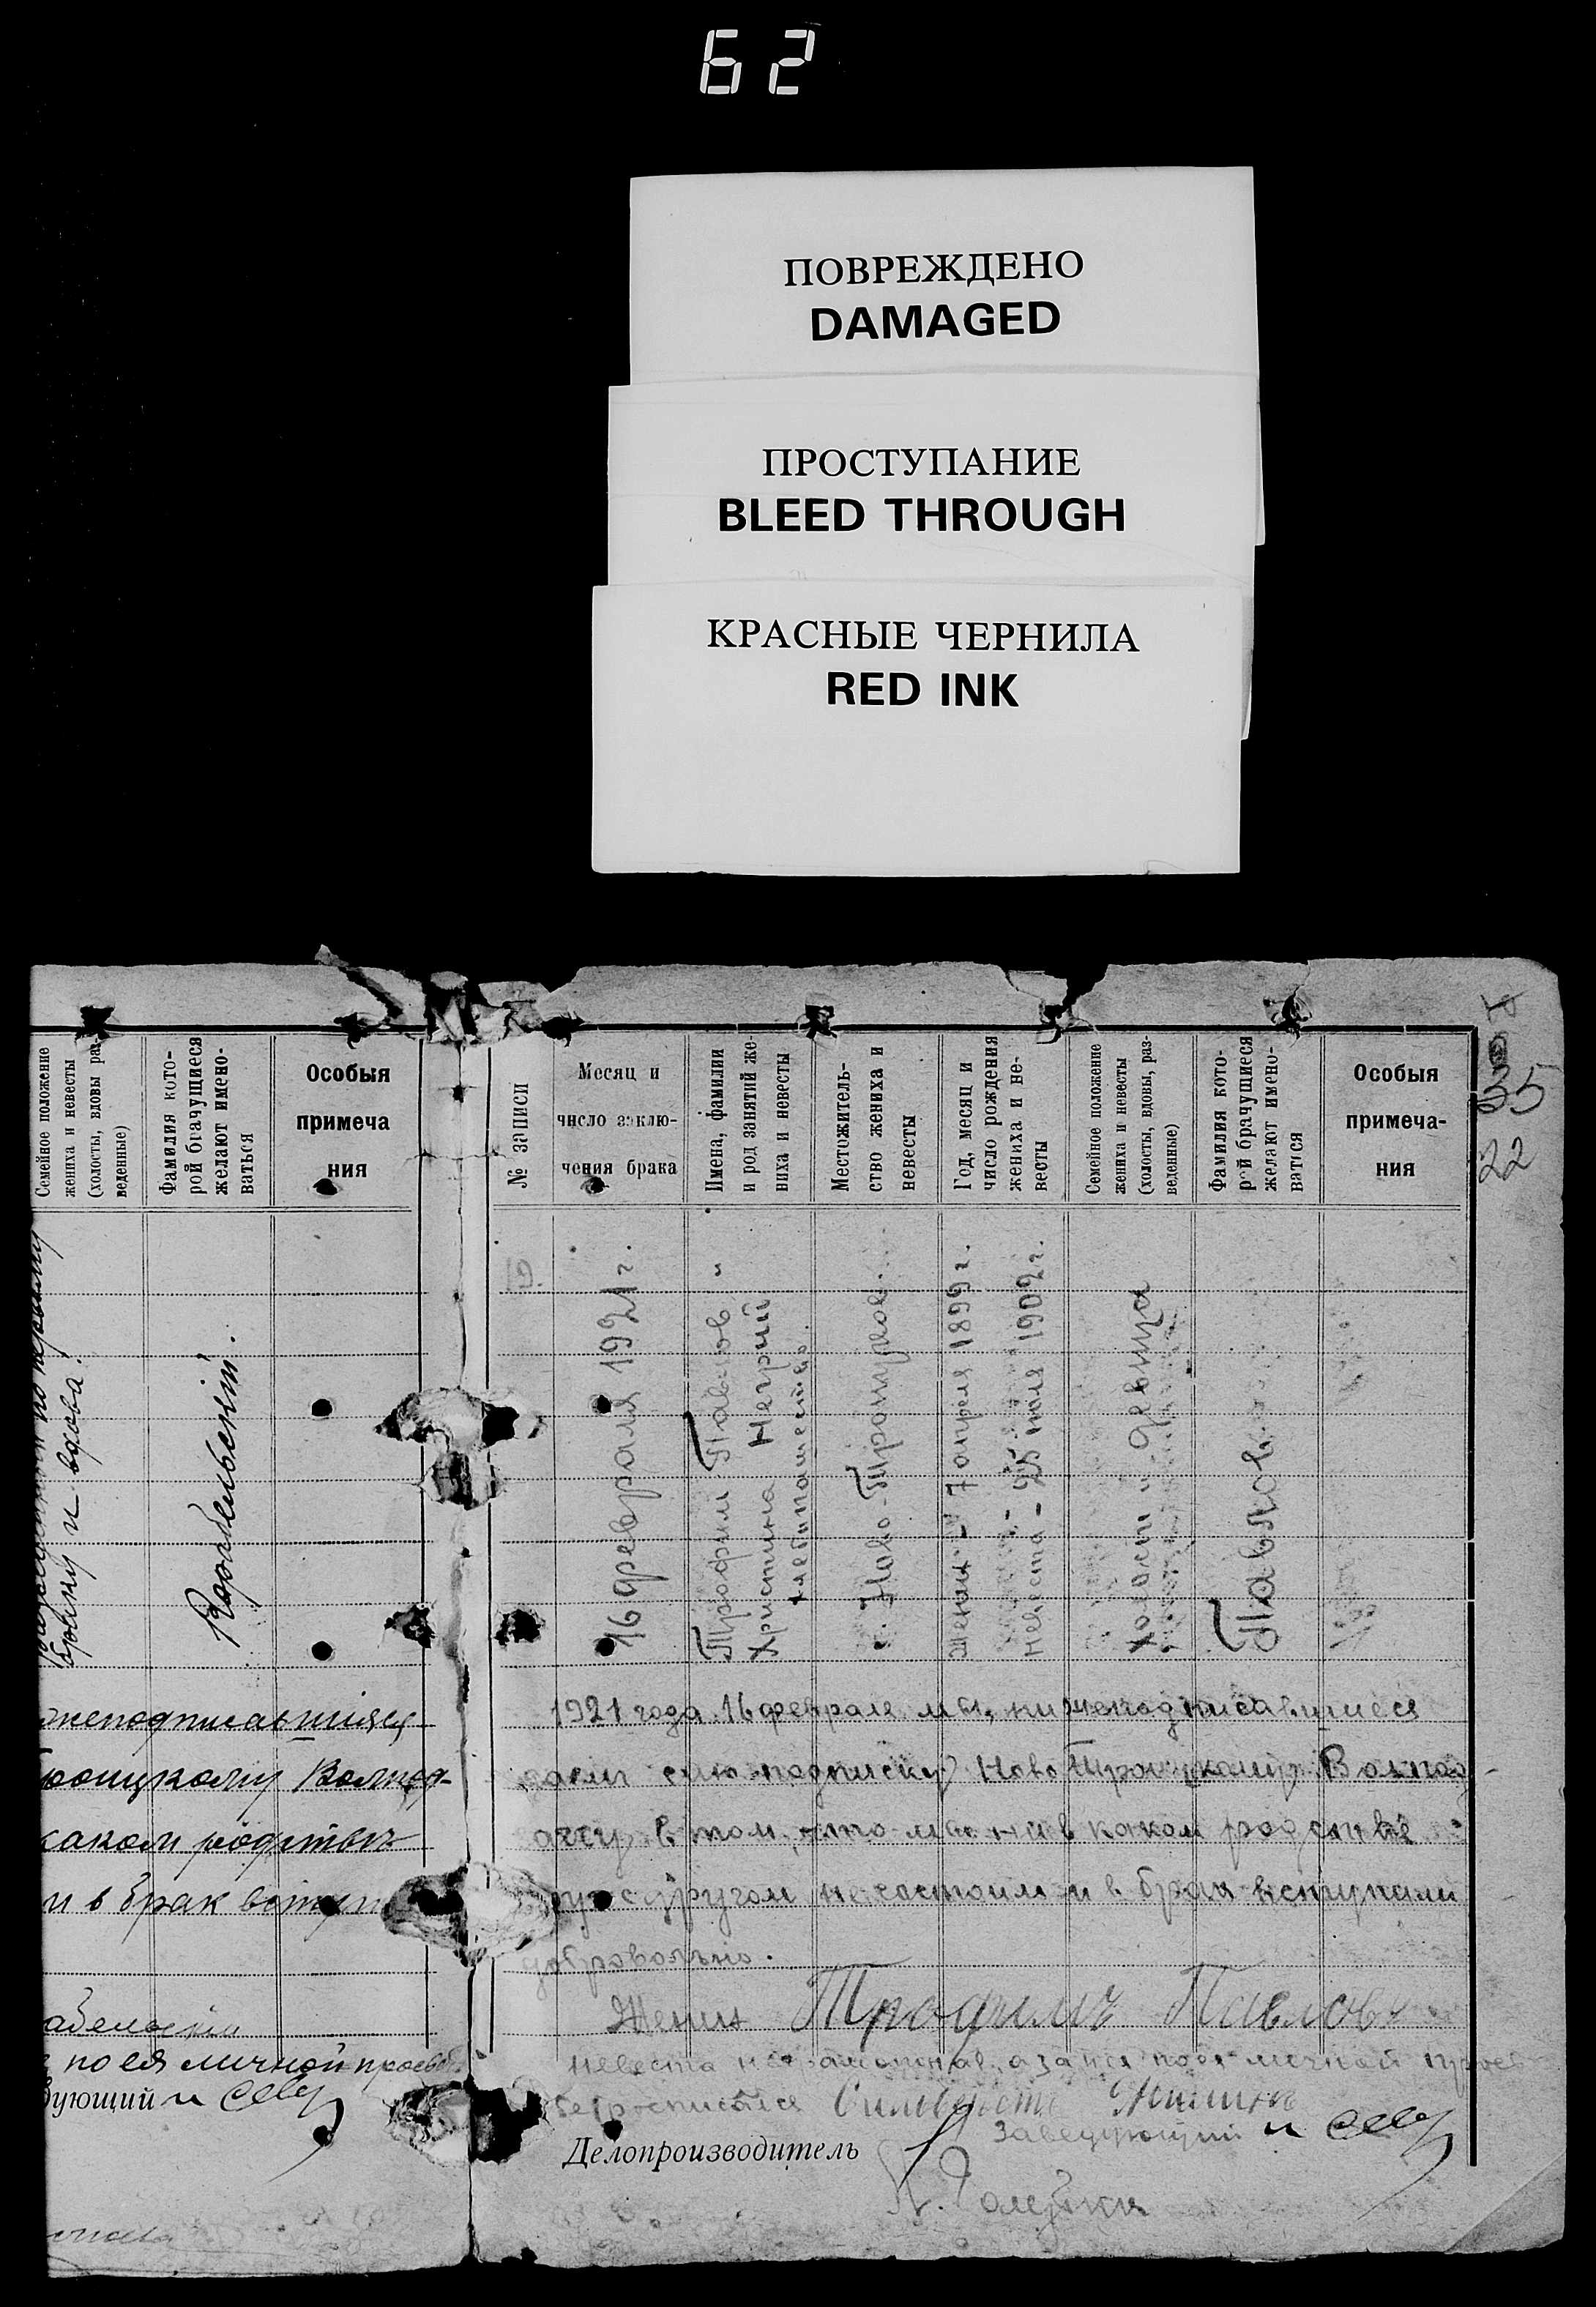 62
ПОВРЕЖДЕНО
DAMAGED
ПРОСТУПАНИЕ
BLEED THROUGH
КРАСНЫЕ ЧЕРНИЛА
RED INK
Семейное положение
жениха и невесты
(холосты, вдовы раз-
веденные)
Фамилия кото-
рой брачущиеся
желают имено-
ваться
Особыя
примеча
ния
браку и вдова.
жеподписавшияся
каком родстве
и в брак вступ
по ея личной просьб
ующий и
№ записи
Месяц и
число заклю-
чения брака
Имена, фамилии
и род занятий же-
ниха и невесты
Местожитель-
ство жениха и
невесты
Год, месяц и
число рождения
жениха и не-
весты
Семейное положение
жениха и невесты
(холосты, вдовы, раз-
веденные)
Фамилия кото-
рой брачущиеся
желают имено-
ваться
Особыя
примеча-
ния
35
22
19.
16 февраля 1921 г.
Трофим Павлов и
Христина Негрий
хлебопашество.
с. Ново-Троицкое.
Жених - 7 апреля 1899 г.
Невеста - 25 июля 1902 г.
холост и девица
Павлов
1921 года 16 февраля мы, нижеподписавшиеся
дали сию подписку Ново Троицкому Волпод
отделу в том, что мы ни в каком родстве
друг с другом не состоим и в брак вступали
добровольно.
Жених Трофимъ Павловъ
Невеста неграмотная, а за нея по ея личной прось
бе росписался
Заведующий и
Делопроизводитель